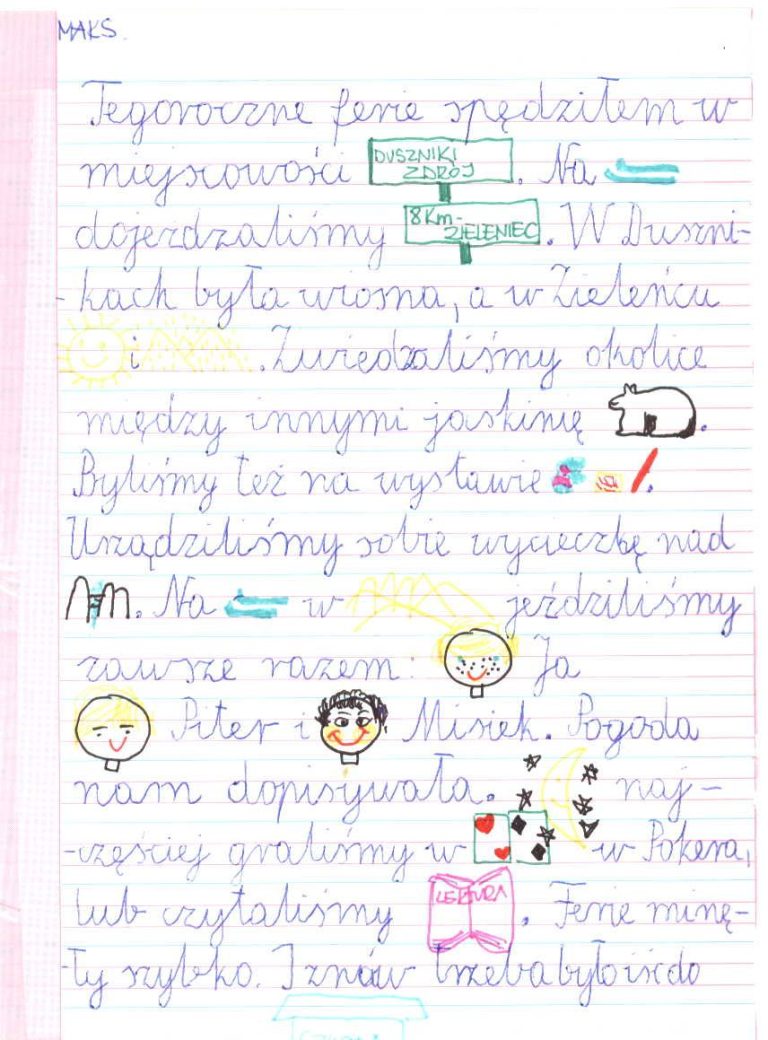 MAKS.
Tegoroczne ferie spędziłem w
miejscowości DUSZNIKI ZDRÓJ. Na
dojeżdzaliśmy 8 Km- ZIELENIEC. W Duszni-
-kach była wiosna, a w Zieleńcu
i . Zwiedzaliśmy okolice
między innymi jaskinię .
Byliśmy też na wystawie .
Urządziliśmy sobie wycieczkę nad
. Na w jeździliśmy
zawsze razem: Ja
Piter i Misiek. Pogoda
nam dopisywała. naj-
-częściej graliśmy w w Pokera,
lub czytaliśmy LEKTURA . Ferie minę-
-ły szybko. I znów trzeba było iść do